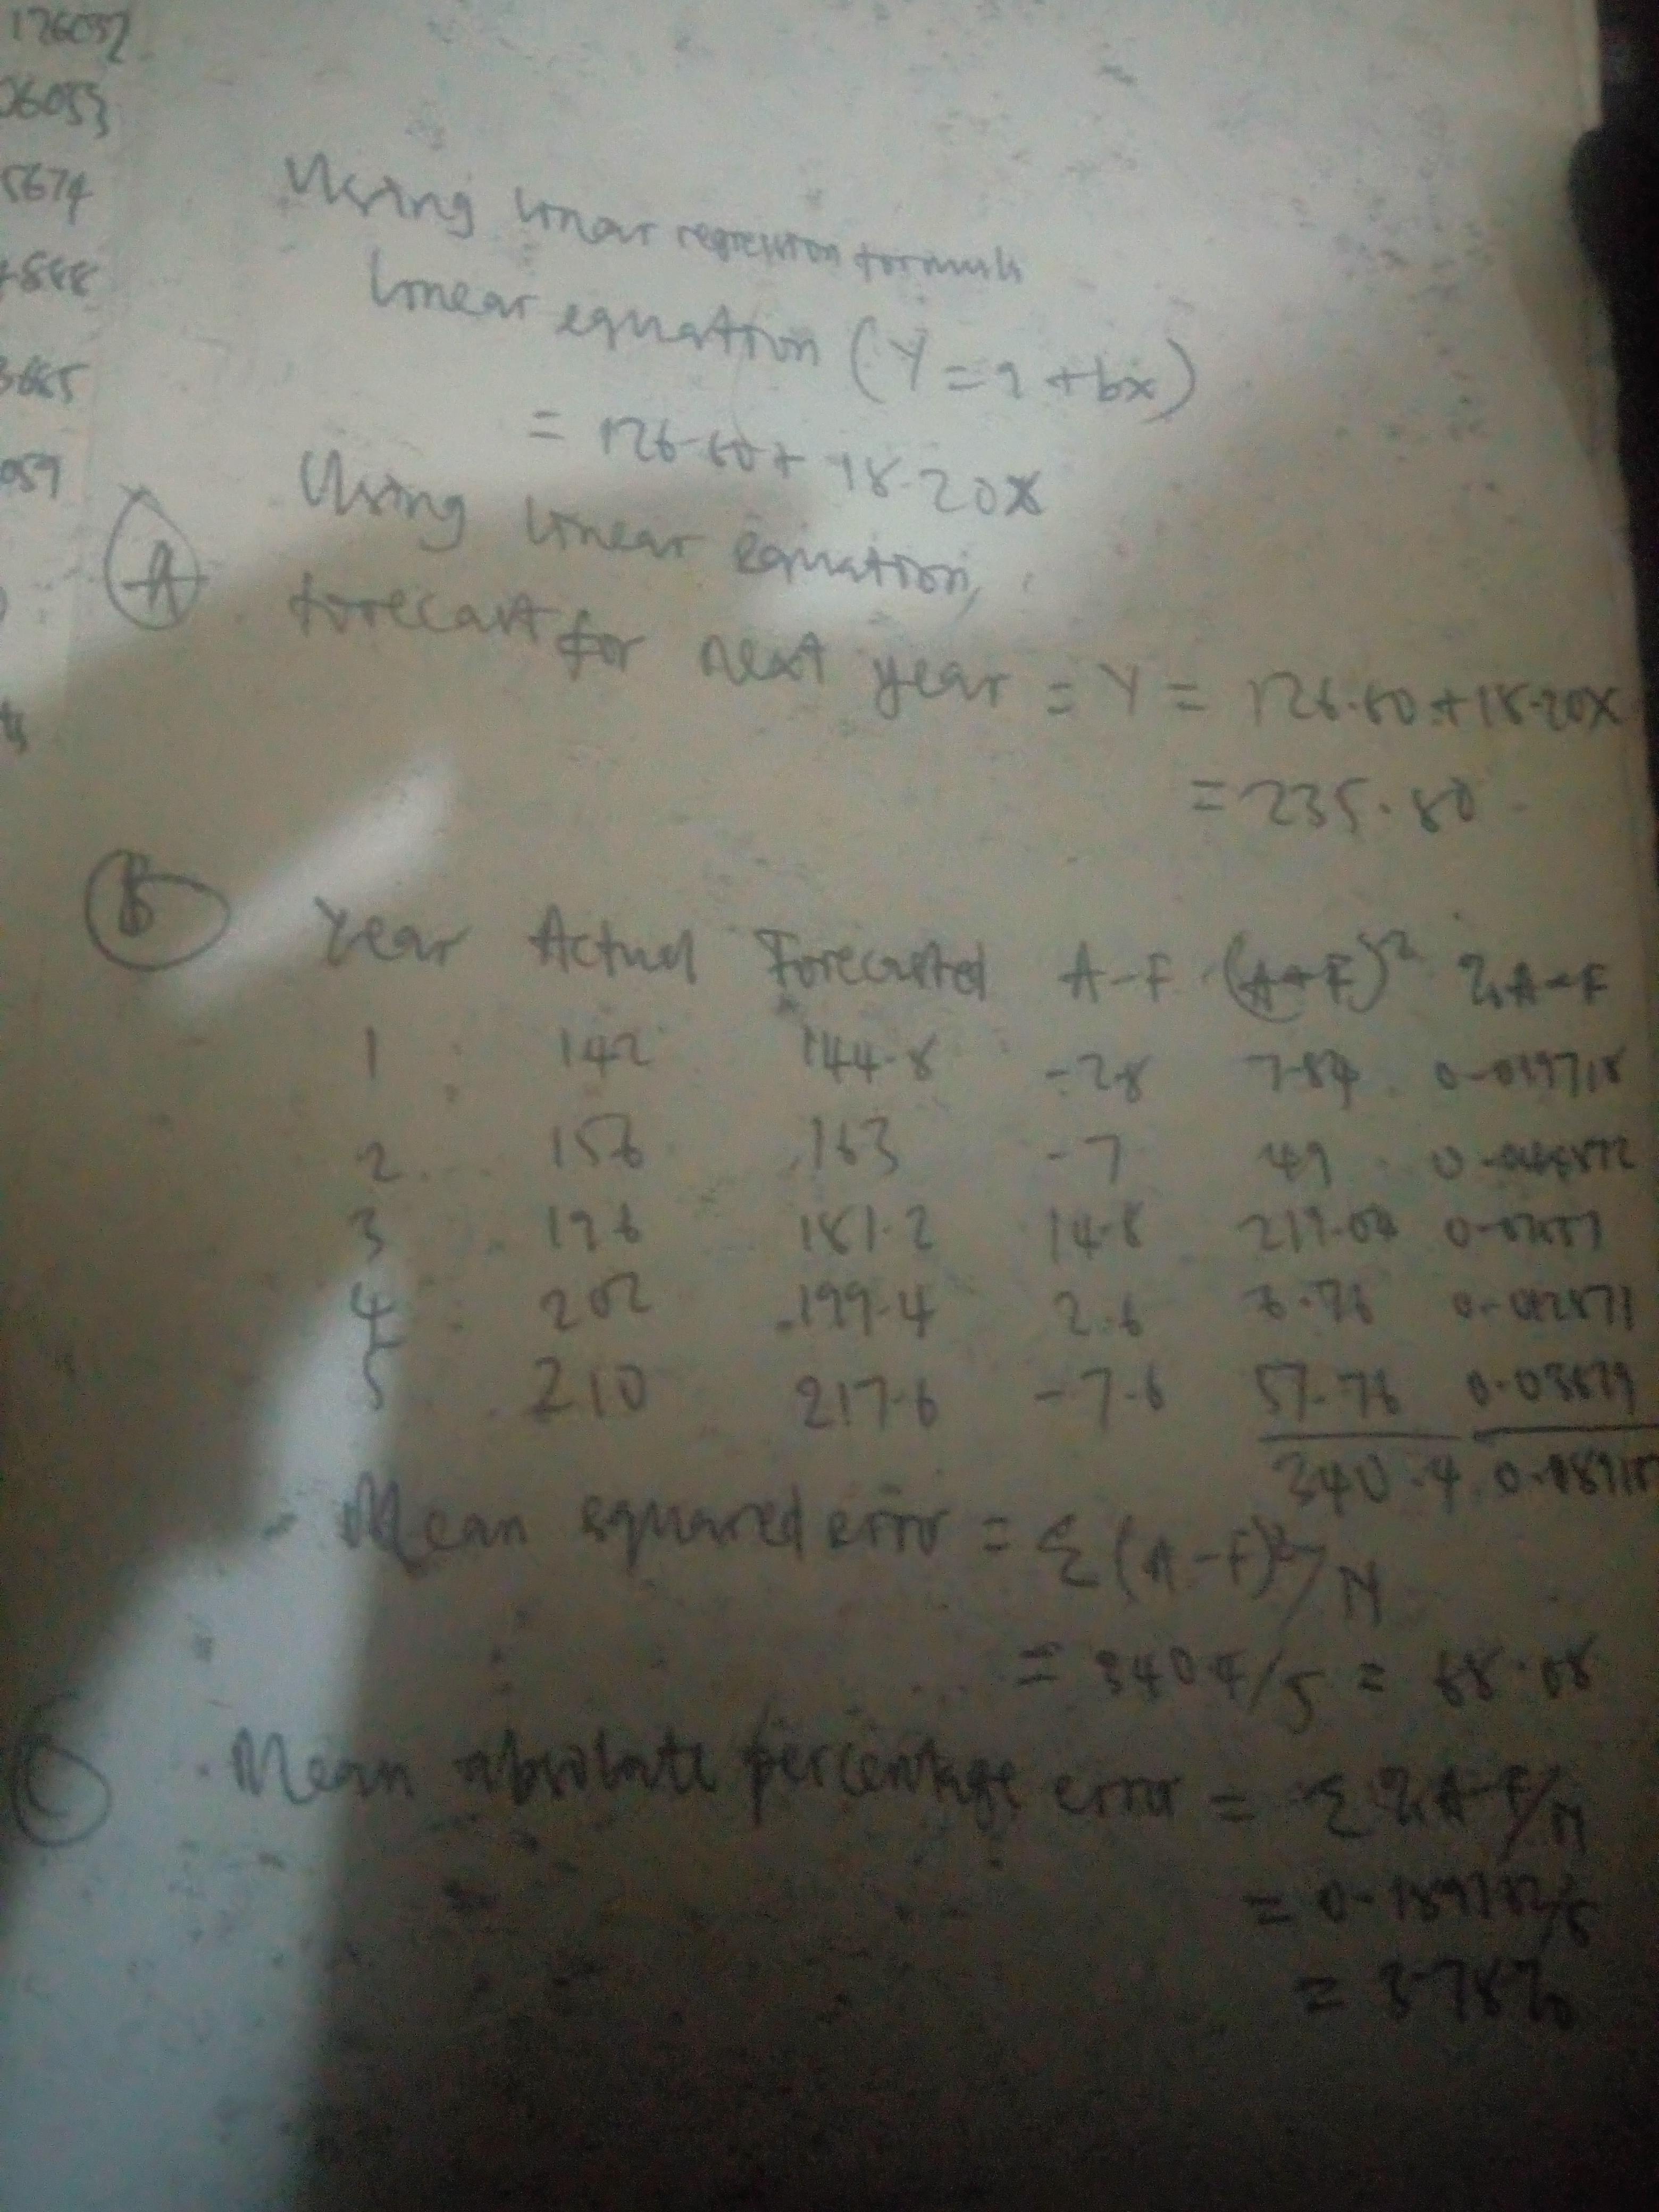 126032
06053
5674
888
3665
059
Using linear regression formula
linear equation (Y = a + bx)
= 126.60 + 18.20x
Using linear equation,
A forecast for next year = Y = 126.60 + 18.20x
= 235.80
B Year Actual Forecasted A-F (A-F)² % A-F
1 142 144.8 -2.8 7.84 0.019718
2 156 163 -7 49 0.044872
3 196 181.2 14.8 219.04
4 202 199.4 2.6 6.76 0.012871
5 210 217.6 -7.6 57.76 0.03619
340.4
Mean squared error = Σ(A-F)²/N
= 340.4/5 = 68.08
C Mean absolute percentage error = Σ % A-F/N
= 0.189182/5
= 3.78%